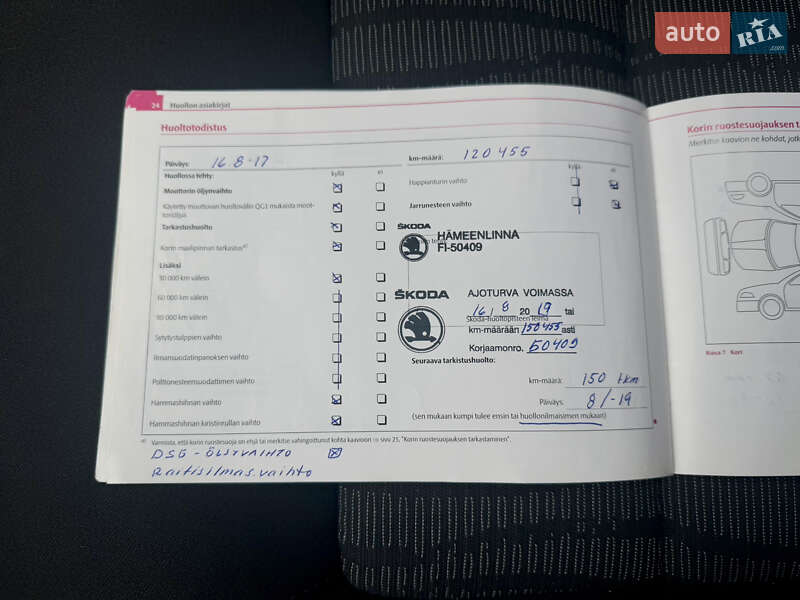 auto RIA
.com
24 Huollon asiakirjat
Huoltotodistus
Päiväys: 16.8.17
km-määrä: 120 455
Huollossa tehty: kyllä ei
kyllä ei
Moottorin öljynvaihto
Happianturin vaihto
Käytetty moottorivan huoltovälin QG1 mukaista moot-
toriöljyä
Jarrunesteen vaihto
Tarkastushuolto
Korin maalipinnan tarkastus
ŠKODA
HÄMEENLINNA
FI-50409
Lisäksi
30 000 km välein
60 000 km välein
90 000 km välein
Sytytystulppien vaihto
Ilmansuodatinpanoksen vaihto
Polttonestesuodattimen vaihto
Hammashihnan vaihto
Hammashihnan kiristinrullan vaihto
ŠKODA
AJOTURVA VOIMASSA
16, 8 2019 tai
Škoda-huoltopisteen leima
km-määrään 150455 asti
Korjaamonro. 50409
Seuraava tarkistushuolto:
km-määrä: 150 tkm
Päiväys. 8/-19
(sen mukaan kumpi tulee ensin tai huollonilmaisimen mukaan)
a) Varmista, että korin ruostesuoja on ehjä tai merkitse vahingoittunut kohta kaavioon ⇒ sivu 25, "Korin ruostesuojauksen tarkastaminen".
DSG - ÖLJYVAIHTO
Raitisilmas.vaihto
Korin ruostesuojauksen t
Merkitse kaavion ne kohdat, jotk
Kuva 7 Kori